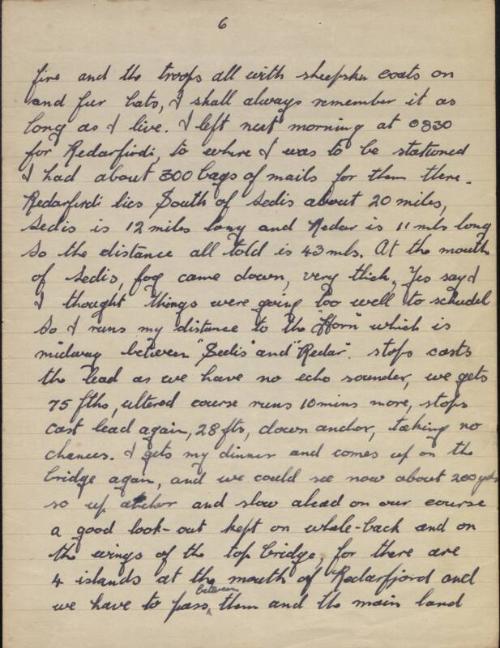 6
fire and the troops all with sheepskin coats on
and fur hats, I shall always remember it as
long as I live. I left next morning at 0830
for Redarfirdi, to where I was to be stationed
I had about 300 bags of mails for them there.
Redarfirdi lies South of Sedis about 20 miles,
Sedis is 12 miles long and Redar is 11 mls long
so the distance all told is 43 mls. At the mouth
of Sedis, fog came down, very thick, Yes say I
I thought things were going too well to schedel
So I runs my distance to the "Horn" which is
midway between "Sedis" and "Redar". stops casts
the lead as we have no echo sounder, we gets
75 fths, altered course runs 10 mins more, stops
cast lead again, 28 fts, down anchor, taking no
chances. I gets my dinner and comes up on the
bridge again, and we could see now about 200 yds
so up anchor and slow ahead on our course
a good look-out kept on whale-back and on
the wings of the top bridge, for there are
4 islands at the mouth of Redarfjord and
we have to pass between them and the main land